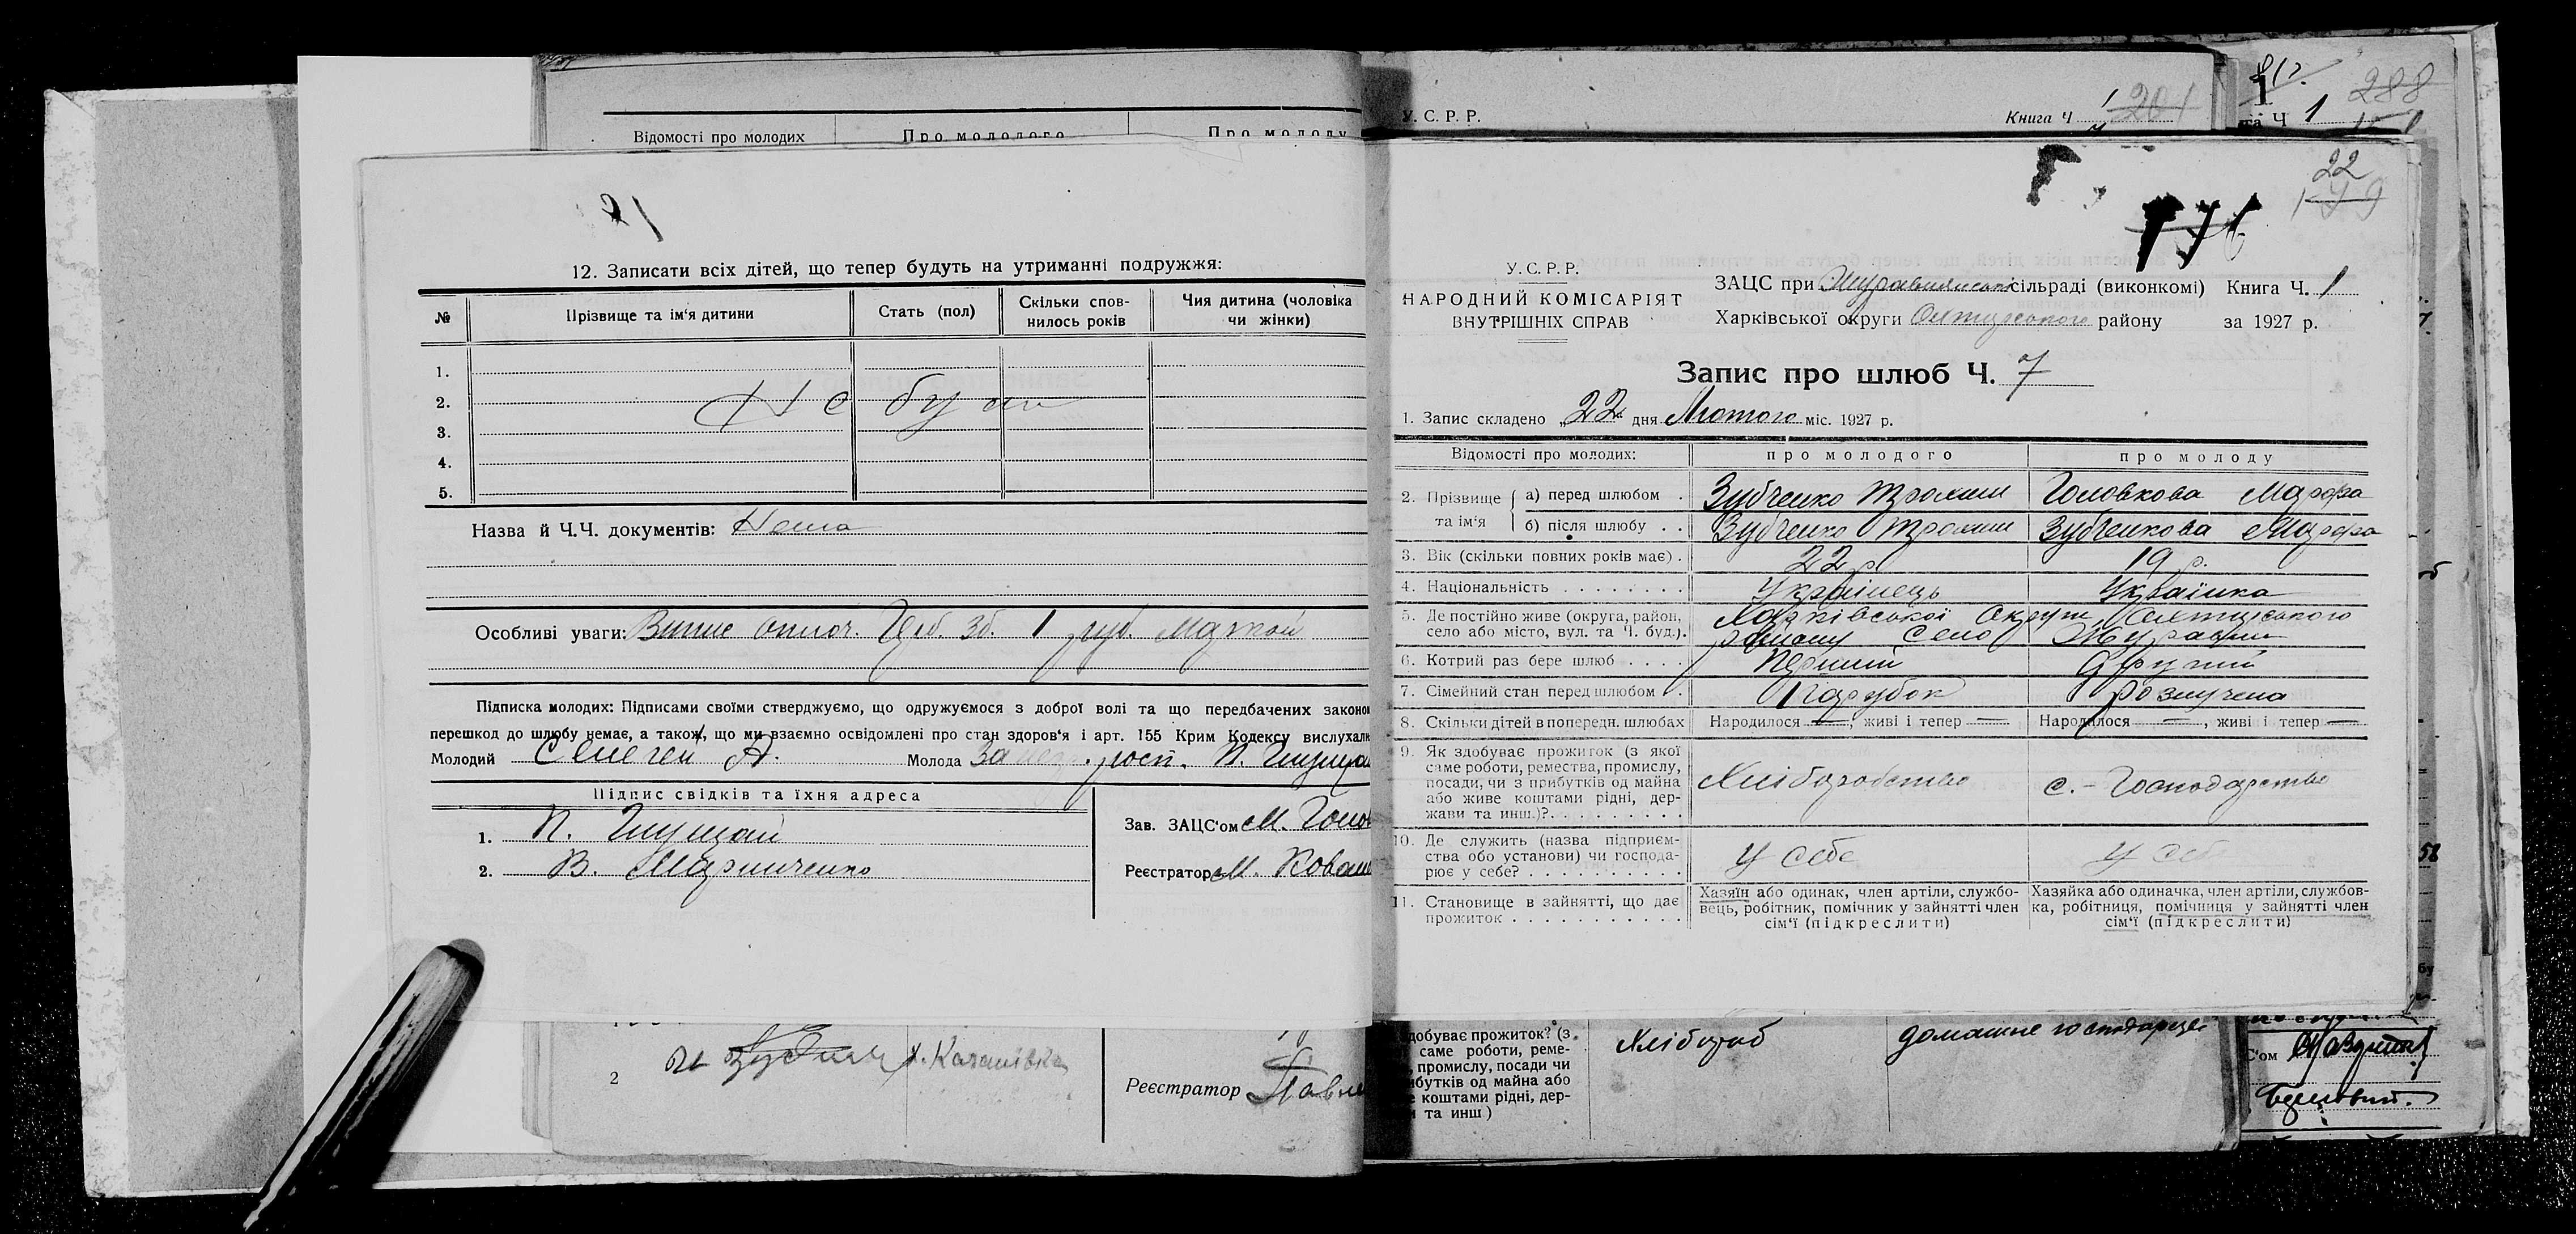 Відомості про молодих Про молодого Про молоду
21
12. Записати всіх дітей, що тепер будуть на утриманні подружжя:
№ Прізвище та ім'я дитини Стать (пол) Скільки сповнилось років Чия дитина (чоловіка чи жінки)
1.
2.
3.
4.
5.
Назва й Ч.Ч. документів: Нема
Особливі уваги: 1 руб.
Підписка молодих: Підписами своїми стверджуємо, що одружуємося з доброї волі та що передбачених законо
перешкод до шлюбу немає, а також, що ми взаємно освідомлені про стан здоров'я і арт. 155 Крим Кодексу вислухал
Молодий Семеген А. Молода
Підпис свідків та їхня адреса
1. П.
2. В. Марниченко
Зав. ЗАЦС'ом М. Голов
Реєстратор М. Ковал
2 х. Качанівка
Реєстратор Павл
У. С. Р. Р. Книга Ч 1 201
та Ч 1 288
22
179
176
У. С. Р. Р.
НАРОДНИЙ КОМІСАРІЯТ
ВНУТРІШНІХ СПРАВ
ЗАЦС при сільраді (виконкомі) Книга Ч. 1
Харківської округи району за 1927 р.
Запис про шлюб Ч. 7
1. Запис складено „22 дня Лютого міс. 1927 р.
Відомості про молодих: про молодого про молоду
2. Прізвище та ім'я а) перед шлюбом Зубченко Трохим Головкова Марфа
б) після шлюбу Зубченко Трохим Зубченкова Марфа
3. Вік (скільки повних років має) 22 р. 19 р.
4. Національність Українець Українка
5. Де постійно живе (округа, район, Харківської Округи
село або місто, вул. та Ч. буд.). району Село Журавлі
6. Котрий раз бере шлюб Перший Другий
7. Сімейний стан перед шлюбом Парубок розлучена
8. Скільки дітей в попередн. шлюбах Народилося —, живі і тепер — Народилося —, живі і тепер —
9. Як здобуває прожиток (з якої
саме роботи, ремества, промислу,
посади, чи з прибутків од майна
або живе коштами рідні, держави та инш.)? Хліборобство с.-Господарство
10. Де служить (назва підприємства обо установи) чи господарює у себе? У себе У себ
11. Становище в зайнятті, що дає
прожиток
Хазяїн або одинак, член артіли, службовець, робітник, помічник у зайнятті член
сім'ї (підкреслити)
Хазяйка або одиначка, член артіли, службовка, робітниця, помічниця у зайнятті член
сім'ї (підкреслити)
добуває прожиток? (з Хлібороб домашнє
саме роботи, реме-
, промислу, посади чи
ибутків од майна або
е коштами рідні, дер-
и та инш)
С'ом